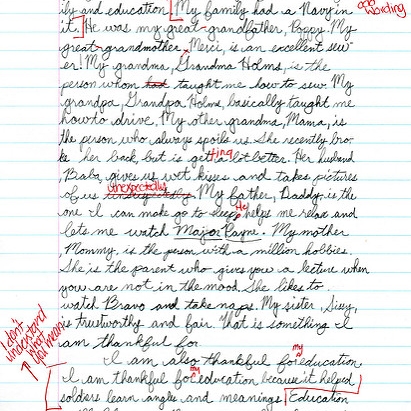 ily and education. My family had a Navy in
odd wording
it. He was my great-grandfather, Poppy. My
great-grandmother, Merci, is an excellent sew-
er! My grandma, Grandma Holms, is the
person whom taught me how to sew. My
grandpa, Grandpa Holms, basically taught me
how to drive. My other grandma, Mama, is
the person who always spoils us. She recently bro-
ke her back, but is getting a lot better. Her husband
Baba, gives us wet kisses and takes pictures
unexpectedly
of us. My father, Daddy, is the
one I can make go to sleep. He helps me relax and
lets me watch Major Payne. My mother,
Mommy, is the person with a million hobbies.
She is the parent who gives you a lecture when
you are not in the mood. She likes to
watch Bravo and take naps. My sister, Sissy,
is trustworthy and fair. That is something I
am thankful for.
I don't understand what you mean
I am also thankful for my education.
I am thankful for my education because it helped
solders learn angles and meanings. Education